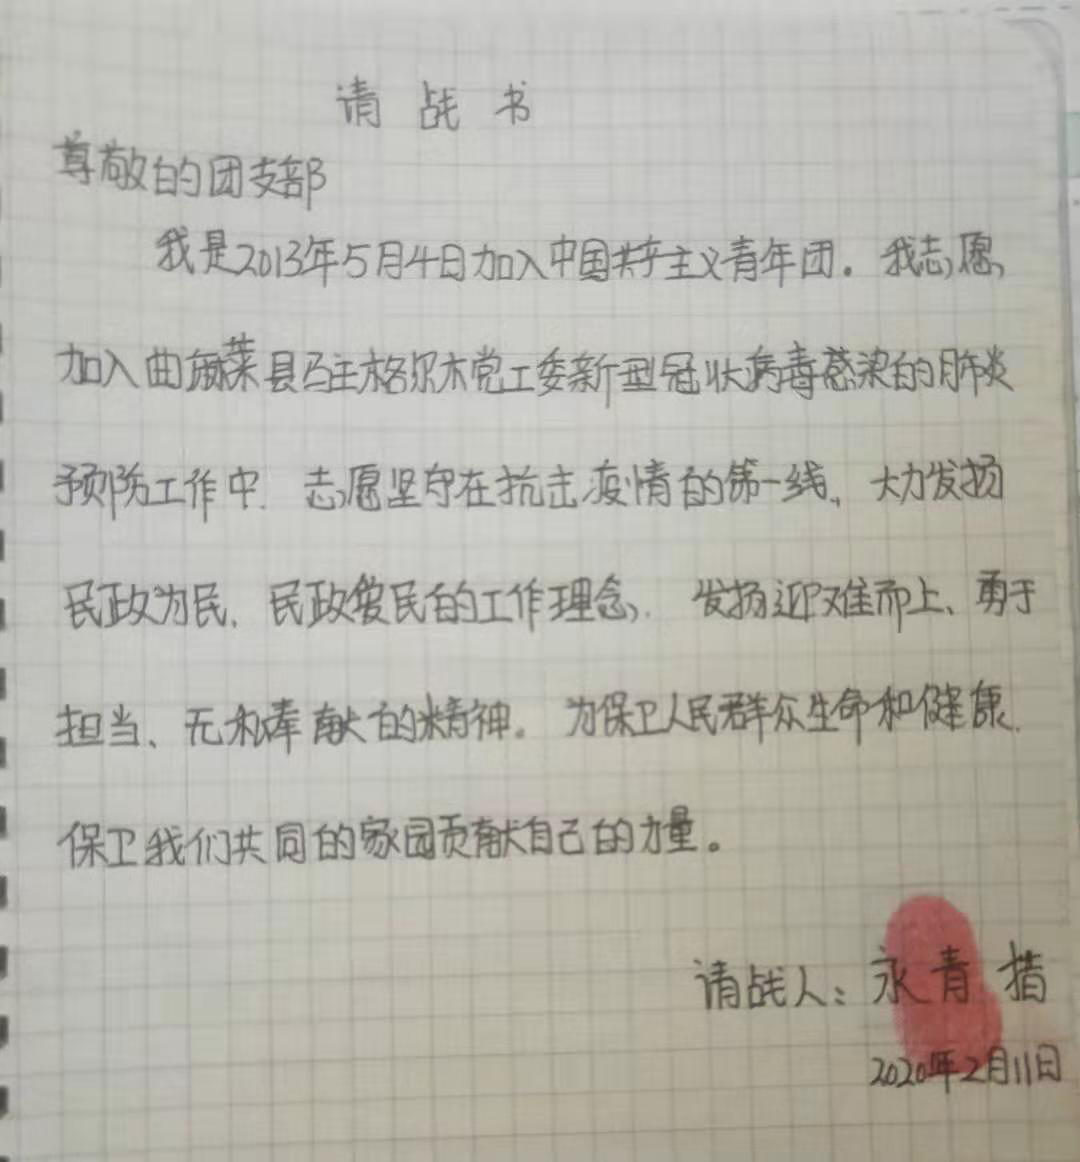 请战书
尊敬的团支部
我是2013年5月4日加入中国共产主义青年团。我志愿
加入曲麻莱县驻格尔木党工委新型冠状病毒感染的肺炎
预防工作中.志愿坚守在抗击疫情的第一线、大力发扬
民政为民、民政爱民的工作理念,.发扬迎难而上、勇于
担当、无私奉献的精神。为保卫人民群众生命和健康.
保卫我们共同的家园贡献自己的力量。
请战人:永青措
2020年2月11日